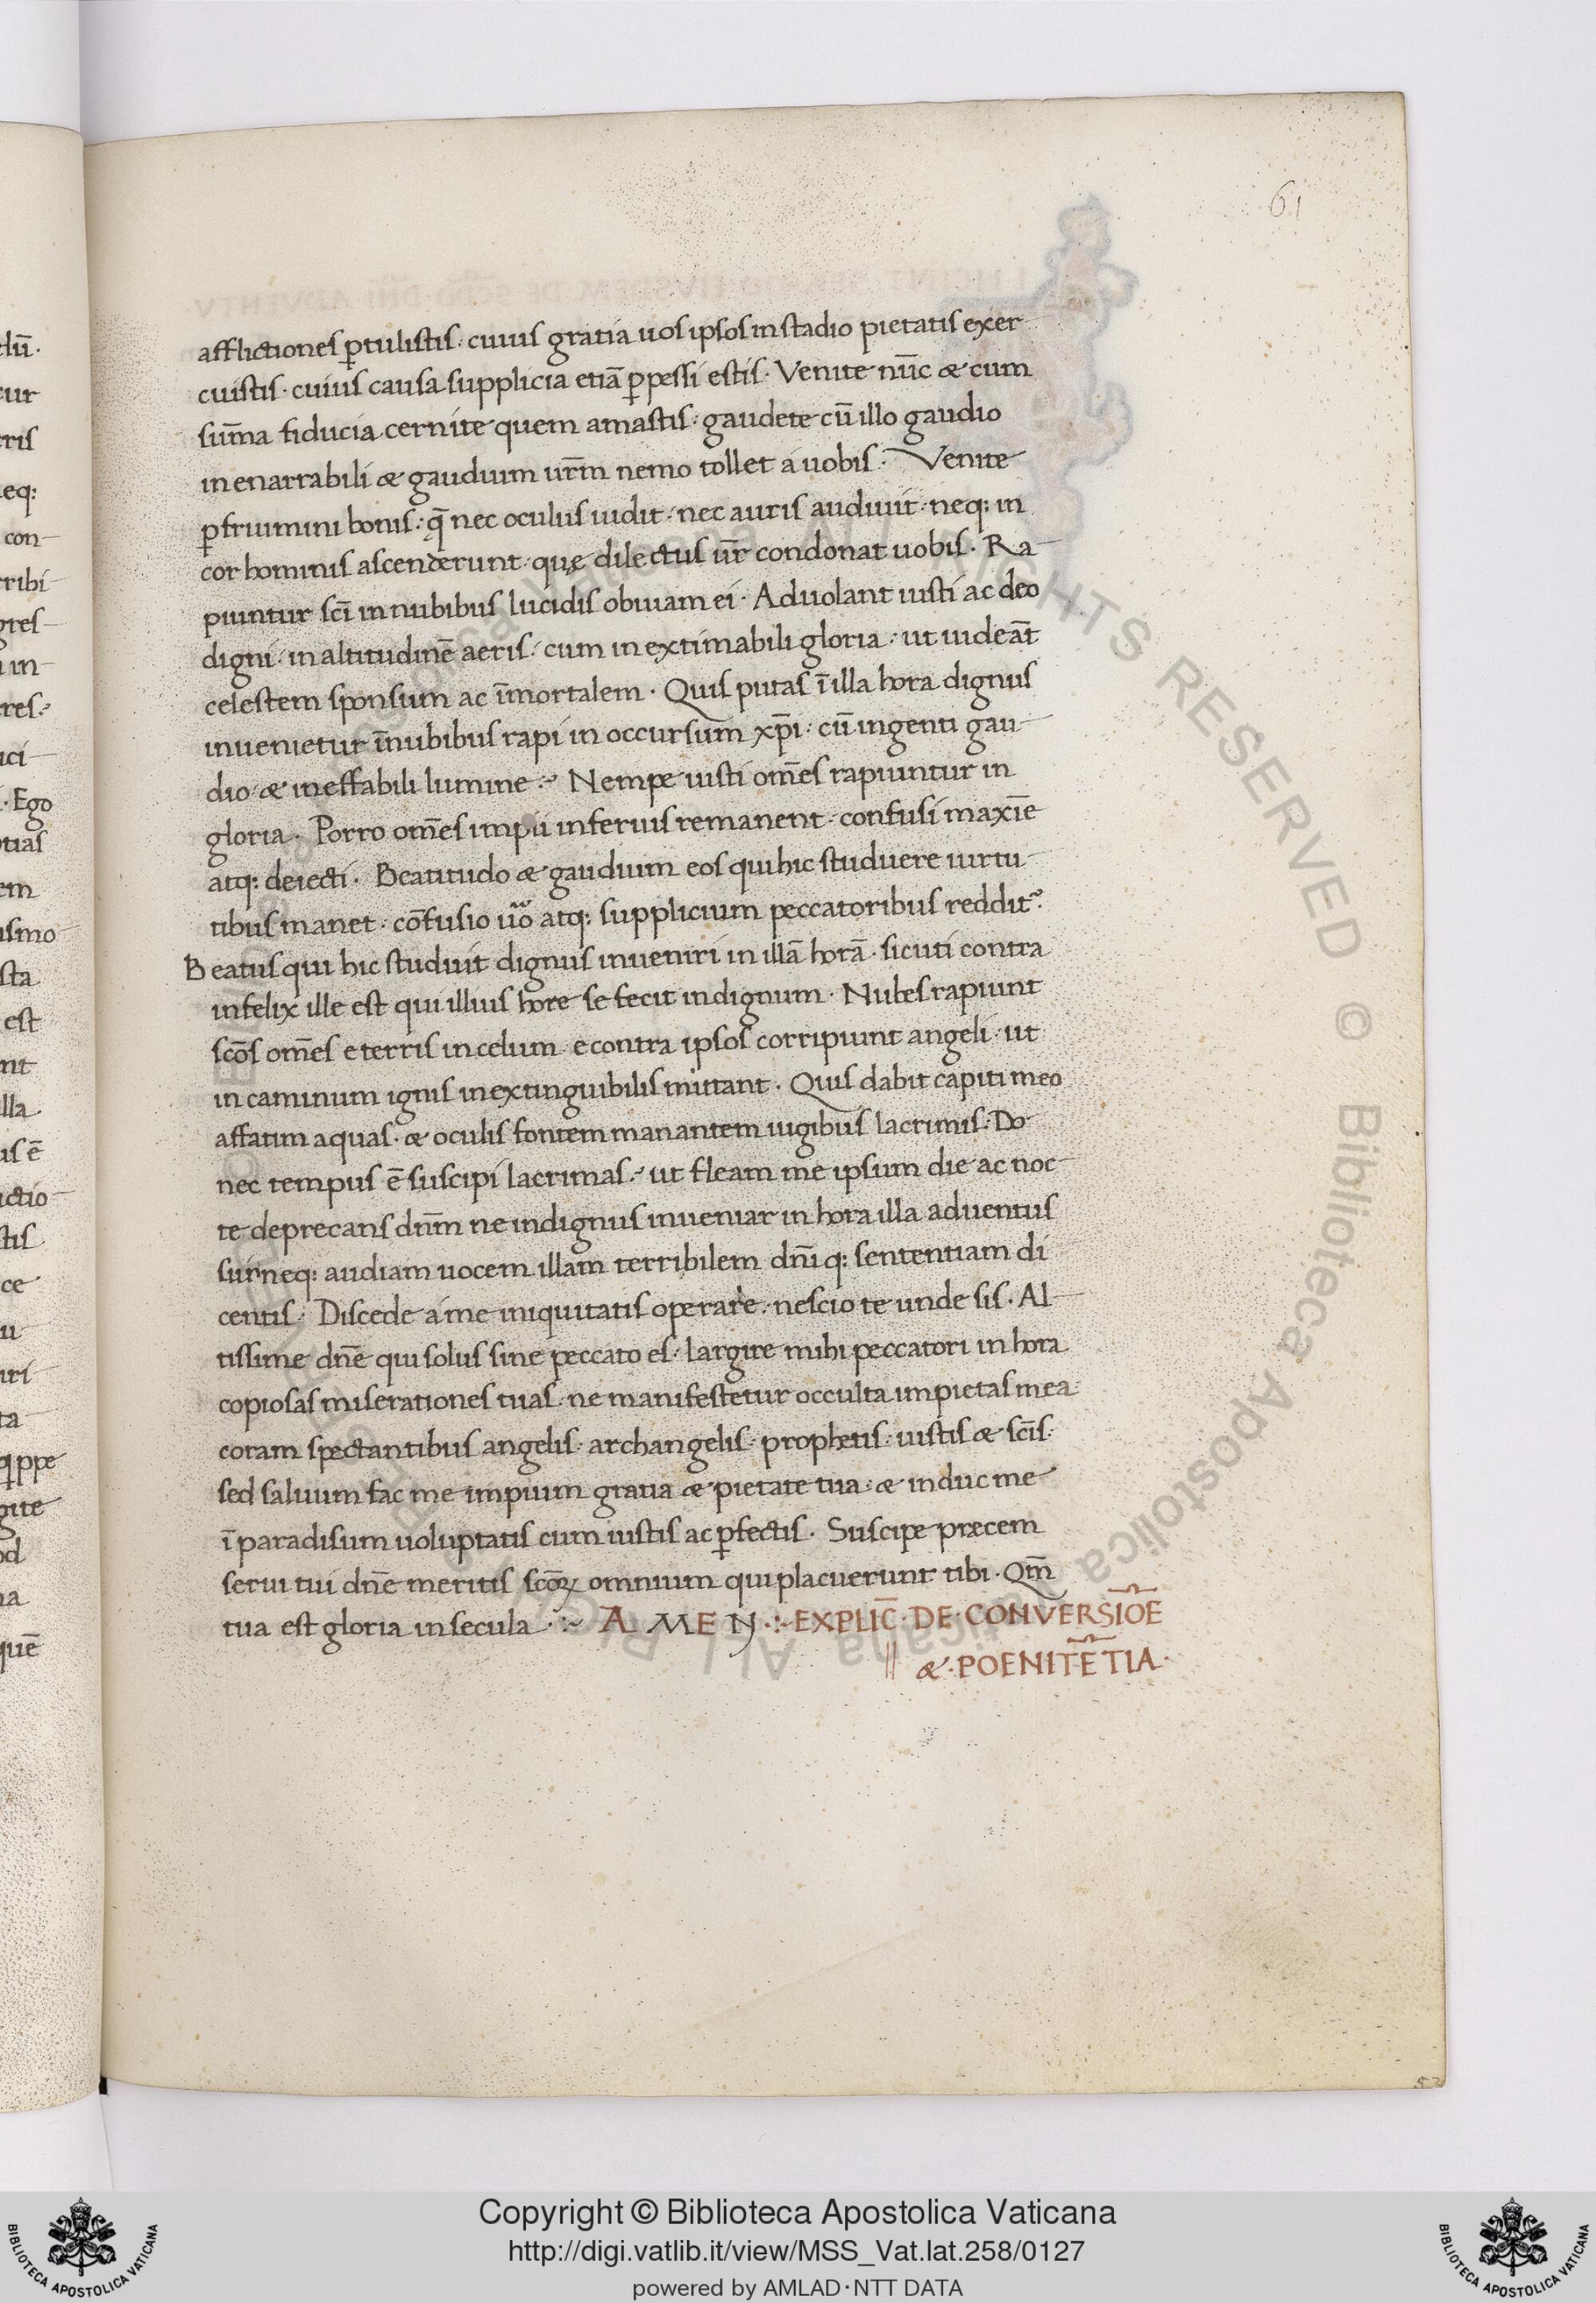 61
afflictiones ꝑtulistis · cuius gratia uos ipsos in stadio pietatis exer
cuistis · cuius causa supplicia etiā ꝑpessi estis · Venite nūc & cum
sūma fiducia cernite quem amastis · gaudete cū illo gaudio
inenarrabili & gaudium ur̄m nemo tollet a uobis · Venite
ꝑfruimini bonis · q̄ nec oculus uidit · nec auris audiuit · neq; in
cor hominis ascenderunt · quę dilectus ur̄ condonat uobis · Ra
piuntur sc̄i in nubibus lucidis obuiam ei · Aduolant iusti ac deo
digni · in altitudinē aeris · cum inextimabili gloria · ut uideāt
celestem sponsum ac īmortalem · Quis putas ī illa hora dignus
inuenietur ī nubibus rapi in occursum xp̄i · cū ingenti gau
dio & ineffabili lumine · Nempe iusti om̄es rapiuntur in
gloria · Porro om̄es impii inferius remanent · confusi maxīe
atq; deiecti · Beatitudo & gaudium eos qui hic studuere uirtu
tibus manet · cōfusio uō atq; supplicium peccatoribus reddit᷑
Beatus qui hic studuit dignus inueniri in illā horā · sicuti contra
infelix ille est qui illius hore se fecit indignum · Nubes rapiunt
sc̄os om̄es e terris in celum · e contra ipsos corripiunt angeli · ut
in caminum ignis inextinguibilis mittant · Quis dabit capiti meo
affatim aquas · & oculis fontem manantem iugibus lacrimis · Do
nec tempus ē suscipi lacrimas · ut fleam me ipsum die ac noc
te deprecans dn̄m ne indignus inueniar in hora illa aduentus
sui neq; audiam uocem illam terribilem dn̄i q; sententiam di
centis · Discede a me iniquitatis operare · nescio te unde sis · Al
tissime dn̄e qui solus sine peccato es · largire mihi peccatori in hora
copiosas miserationes tuas · ne manifestetur occulta impietas mea
coram spectantibus angelis · archangelis · prophetis · iustis & sc̄is ·
sed saluum fac me impium gratia & pietate tua · & induc me
ī paradisum uoluptatis cum iustis ac ꝑfectis · Suscipe precem
serui tui dn̄e meritis sc̄oꝝ omnium qui placuerunt tibi · Qm̄
tua est gloria in secula · AMEN · EXPLIC̄ · DE · CONVERSIŌE
& · POENITĒTIA ·
Copyright © Biblioteca Apostolica Vaticana
http://digi.vatlib.it/view/MSS_Vat.lat.258/0127
powered by AMLAD·NTT DATA